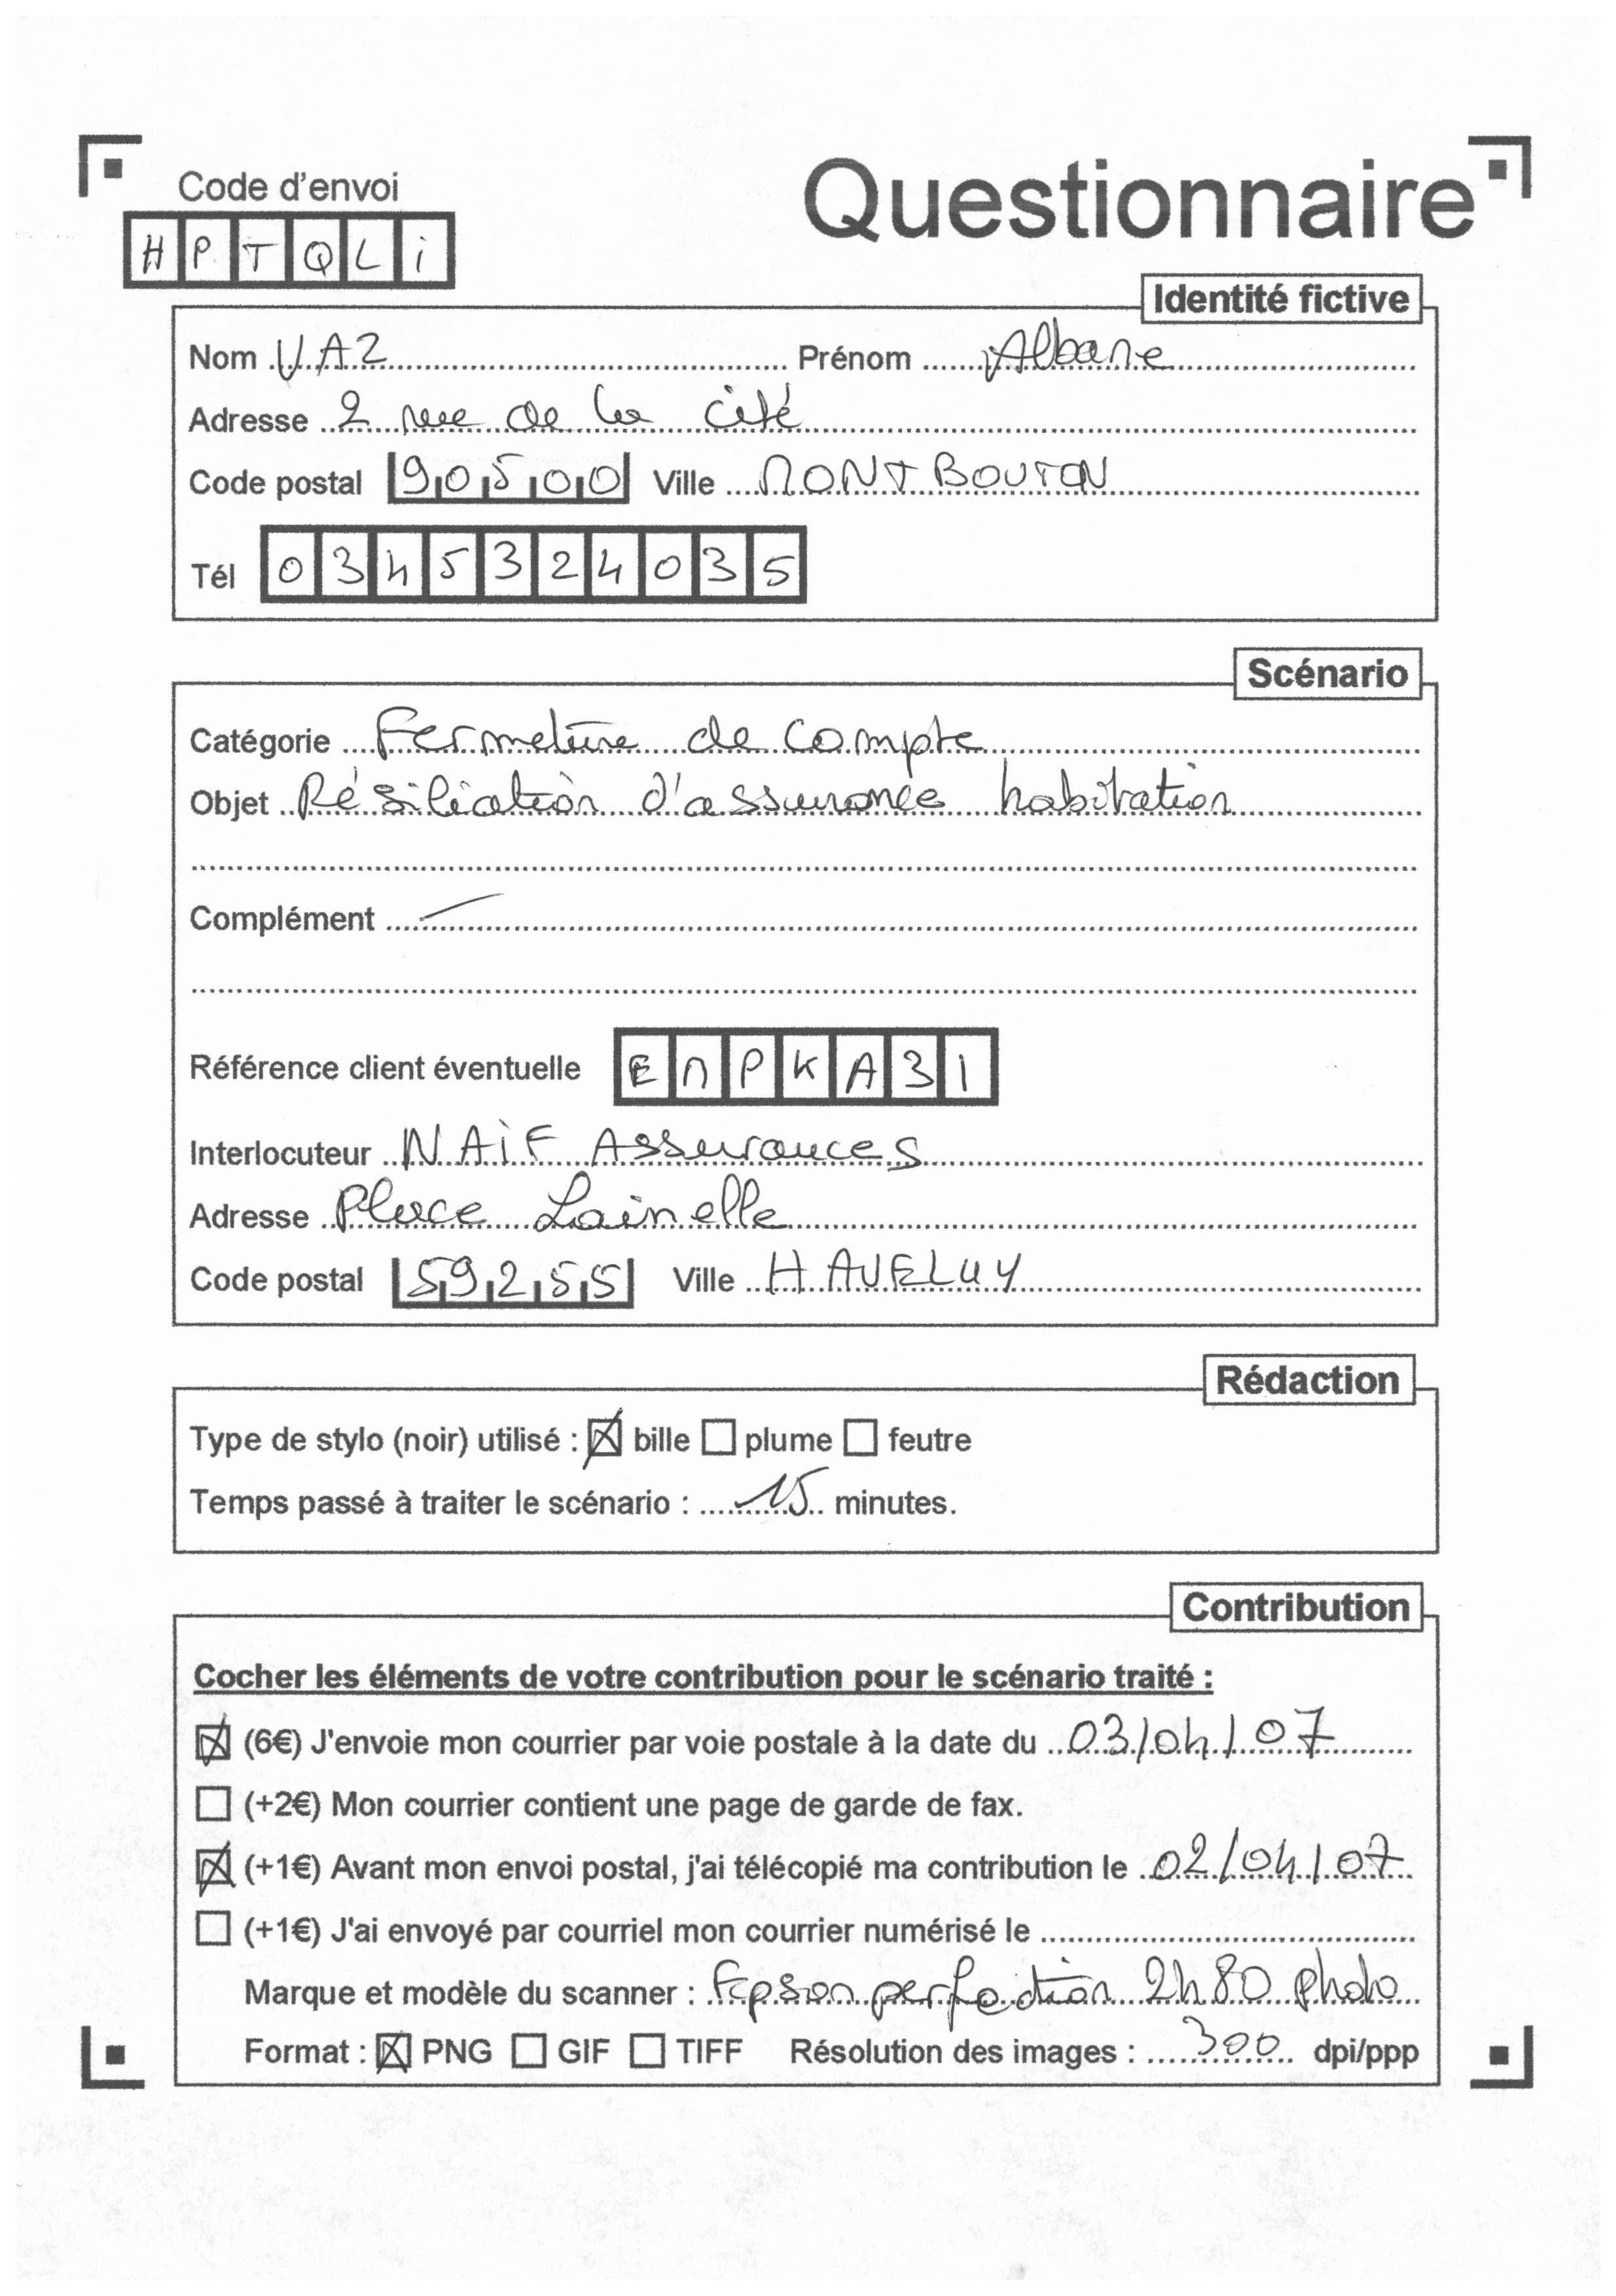 Code d'envoi
Questionnaire
HPTQLi
Identité fictive
Nom VAZ Prénom Albane
Adresse 2 rue de la cité
Code postal 90500 Ville MONTBOUTON
Tél 0345324035
Scénario
Catégorie Fermeture de compte
Objet Résiliation d'assurance habitation
Complément
Référence client éventuelle EMPKA31
Interlocuteur NAiF Assurances
Adresse Place Lainelle
Code postal 59255 Ville HAVELUY
Rédaction
Type de stylo (noir) utilisé : ☒ bille ☐ plume ☐ feutre
Temps passé à traiter le scénario : 15 minutes.
Contribution
Cocher les éléments de votre contribution pour le scénario traité :
☒ (6€) J'envoie mon courrier par voie postale à la date du 03/04/07
☐ (+2€) Mon courrier contient une page de garde de fax.
☒ (+1€) Avant mon envoi postal, j'ai télécopié ma contribution le 02/04/07
☐ (+1€) J'ai envoyé par courriel mon courrier numérisé le
Marque et modèle du scanner : Epson perfection 2480 photo
Format : ☒ PNG ☐ GIF ☐ TIFF Résolution des images : 300 dpi/ppp